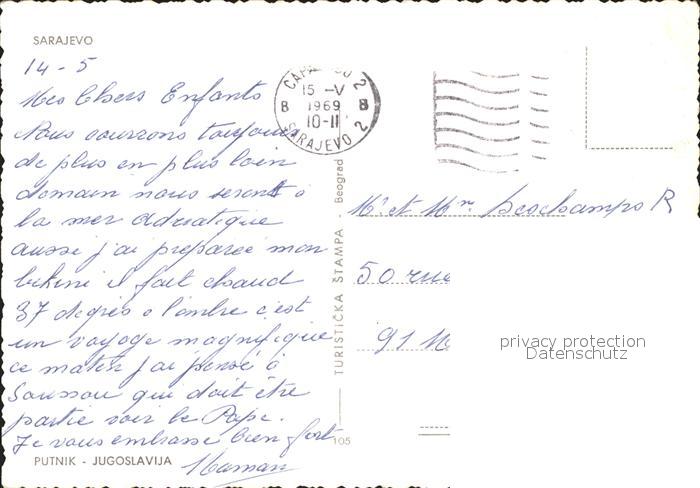 SARAJEVO
14-5
Mes Chers Enfants
Nous courrons toujours
de plus en plus loin
demain nous seront a
la mer Adriatique
aussi j'ai preparée mon
bikini il fait chaud
37 degrés a l'ombre c'est
un voyage magnifique
ce matin j'ai pensé a
qui doit être
partie voir le Pape.
Je vous embrasse bien fort
Maman
PUTNIK - JUGOSLAVIJA
105
TURISTIČKA ŠTAMPA Beograd
15 -V
1969
8 8
10-11
SARAJEVO 2
Mr et Mme Deschamps R
50 rue
91
privacy protection
Datenschutz